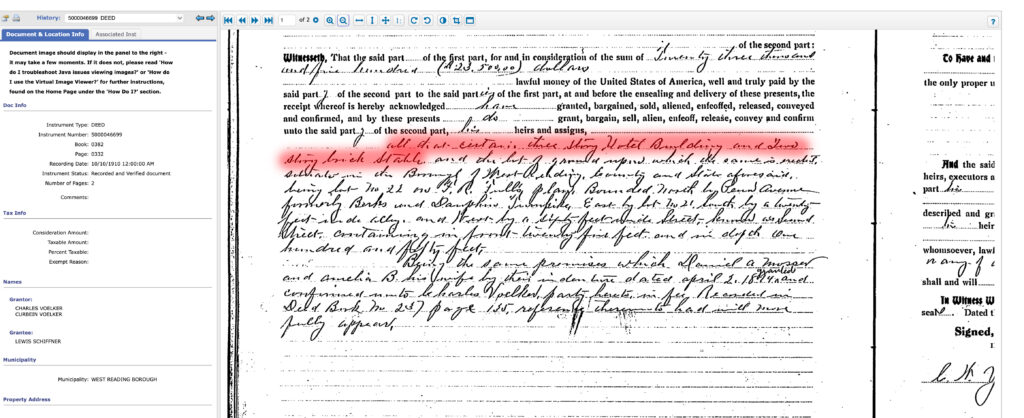 History: 5000046699 DEED
1 of 2
?
Document & Location Info Associated Inst
Document image should display in the panel to the right -
it may take a few moments. If it does not, please read 'How
do I troubleshoot Java issues viewing images?' or 'How do
I use the Virtual Image Viewer?' for further instructions,
found on the Home Page under the 'How Do I?' section.
Doc Info
Instrument Type: DEED
Instrument Number: 5000046699
Book: 0382
Page: 0332
Recording Date: 10/10/1910 12:00:00 AM
Instrument Status: Recorded and Verified document
Number of Pages: 2
Comments:
Tax Info
Consideration Amount:
Taxable Amount:
Percent Taxable:
Exempt Reason:
Names
Grantor:
CHARLES VOELKER
CURBEIN VOELKER
Grantee:
LEWIS SCHIFFNER
Municipality
Municipality: WEST READING BOROUGH
Property Address
of the second part:
Witnesseth, That the said part of the first part, for and in consideration of the sum of Twenty three thousand
and five hundred ($23,500,00) dollars
lawful money of the United States of America, well and truly paid by the
said part y of the second part to the said part ies of the first part, at and before the ensealing and delivery of these presents, the
receipt whereof is hereby acknowledged have granted, bargained, sold, aliened, enfeoffed, released, conveyed
and confirmed, and by these presents do grant, bargain, sell, alien, enfeoff, release, convey and confirm
unto the said part y of the second part, his heirs and assigns,
all that certain three story Hotel Building and Two
story brick Stable, and the lot of ground upon which the same is erected,
situate in the Borough of West Reading, County and State aforesaid,
being lot No. 22 on Tully plan, Bounded, North by Penn Avenue
formerly Berks and Dauphin Turnpike, East by lot No 21, South by a twenty
feet wide alley, and West by a sixty feet wide Street, known as Second
Street, containing in front twenty five feet and in depth one
hundred and fifty feet,
Being the same premises which Daniel A. Mosser
and Amelia B. his wife by their indenture dated April 2, granted and
confirmed unto Charles Voelker, party hereto, in fee, Recorded in
Deed Book page 155, reference thereunto had will more
fully appear,
To Have and
the only proper u
And the said
heirs, executors a
part his
described and gr
his heir
whomsoever, lawf
or any of
shall and will
In Witness W
seal Dated t
Signed,